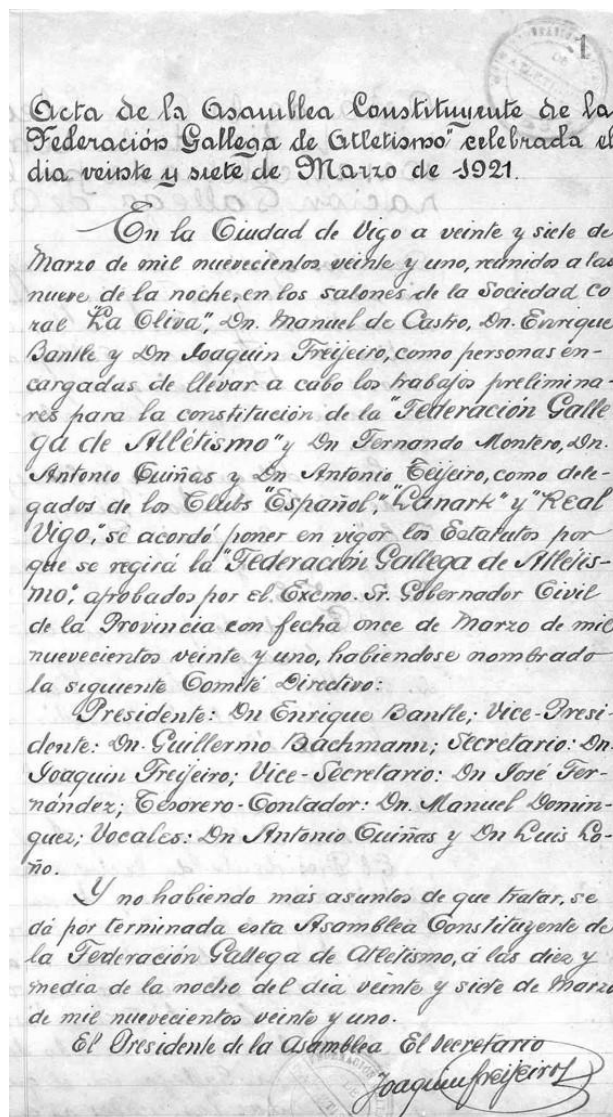 1
Acta de la Asamblea Constituyente de la
"Federación Gallega de Atletismo" celebrada el
dia veinte y siete de Marzo de 1921.
En la Ciudad de Vigo a veinte y siete de
Marzo de mil nuevecientos veinte y uno, reunidos a las
nueve de la noche, en los salones de la Sociedad Co
ral "La Oliva", Dn. Manuel de Castro, Dn. Enrique
Bantle y Dn Joaquin Freijeiro, como personas en-
cargadas de llevar a cabo los trabajos prelimina-
res para la constitución de la "Federación Galle
ga de Atlétismo" y Dn Fernando Montero, Dn.
Antonio Guiñas y Dn Antonio Teijeiro, como dele-
gados de los Clubs "Español", "Lanark" y "Real
Vigo," se acordó poner en vigor los Estatutos por
que se regirá la "Federación Gallega de Atlétis-
mo", aprobados por el Excmo. Sr. Gobernador Civil
de la Provincia con fecha once de Marzo de mil
nuevecientos veinte y uno, habiendose nombrado
la siguiente Comité Directivo:
Presidente: Dn Enrique Bantle; Vice-Presi-
dente: Dn. Guillermo Bachmann; Secretario: Dn.
Joaquin Freijeiro; Vice-Secretario: Dn José Fer-
nández; Tesorero-Contador: Dn. Manuel Domin-
guez; Vocales: Dn Antonio Guiñas y Dn Luis Lo-
ño.
Y no habiendo más asuntos de que tratar, se
dá por terminada esta Asamblea Constituyente de
la Federación Gallega de Atlétismo, á las diez y
media de la noche del dia veinte y siete de Marzo
de mil nuevecientos veinte y uno.
El Presidente de la Asamblea El Secretario
Joaquin Freijeiro